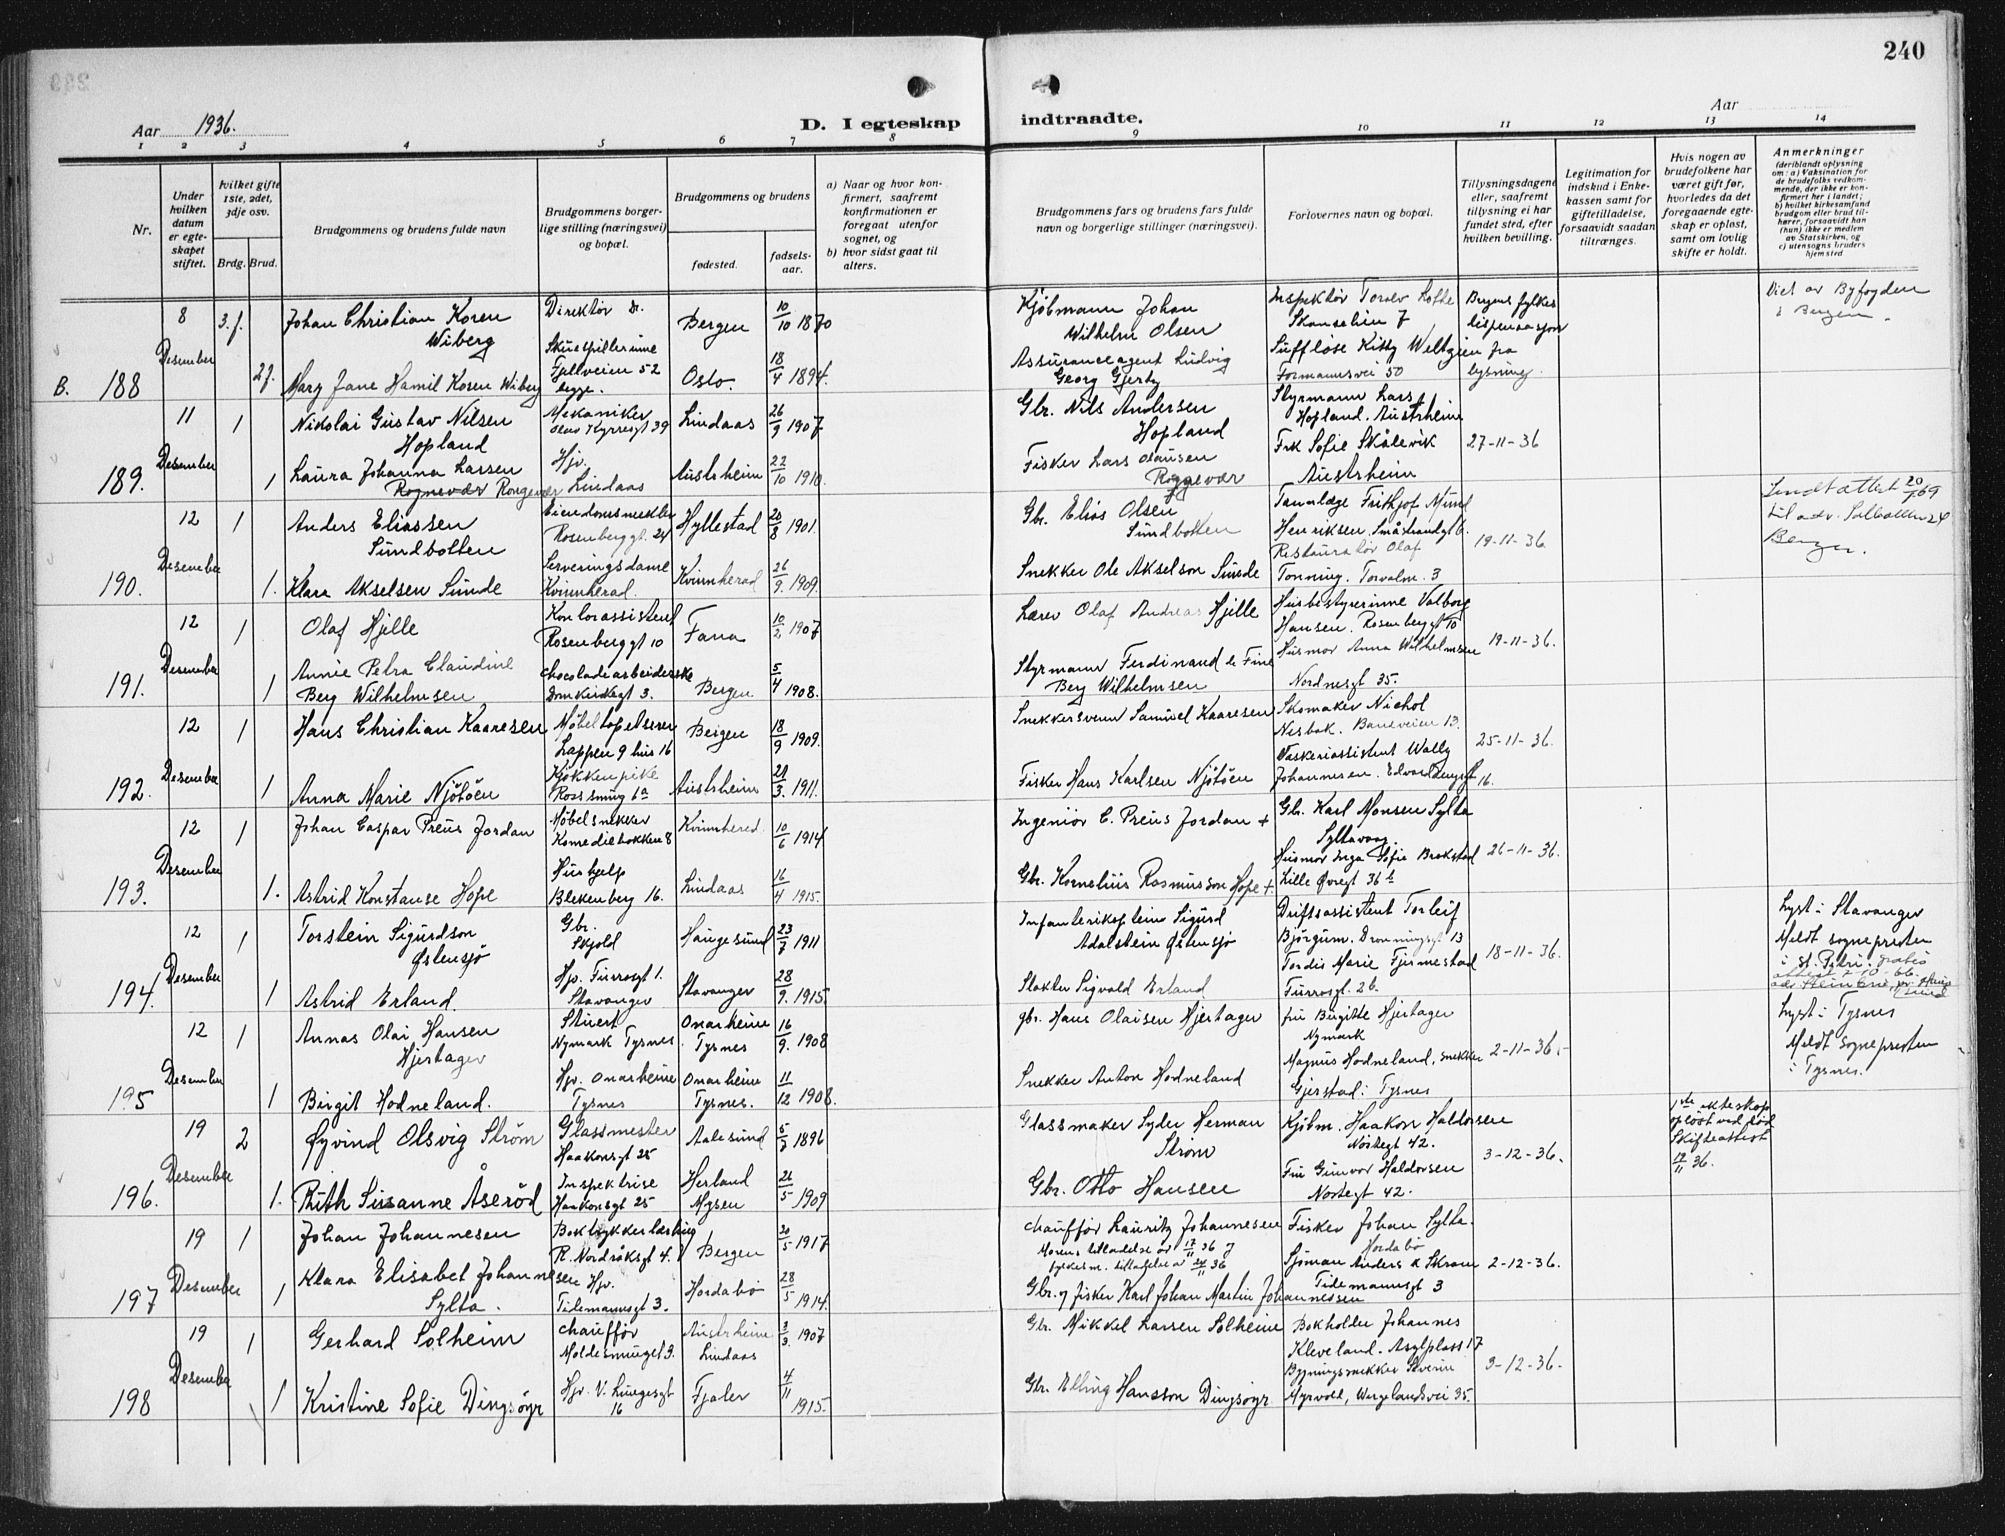 240
Aar 1936.
D. I egteskap indtraadte.
Aar
1 2 3 4 5 6 7 8 9 10 11 12 13 14
Nr.
Under hvilken datum er egteskapet stiftet.
hvilket gifte 1ste, 2det, 3dje osv.
Brdg. Brud.
Brudgommens og brudens fulde navn
Brudgommens borgerlige stilling (næringsvei) og bopæl.
Brudgommens og brudens
fødested.
fødselsaar.
a) Naar og hvor konfirmert, saafremt konfirmationen er foregaat utenfor sognet, og
b) hvor sidst gaat til alters.
Brudgommens fars og brudens fars fulde navn og borgerlige stillinger (næringsvei).
Forlovernes navn og bopæl.
Tillysningsdagene eller, saafremt tillysning ei har fundet sted, efter hvilken bevilling.
Legitimation for indskud i Enkekassen samt for giftetilladelse, forsaavidt saadan tiltrænges.
Hvis nogen av brudefolkene har været gift før, hvorledes da det foregaaende egteskap er opløst, samt om lovlig skifte er holdt.
Anmerkninger
(deriblandt oplysning om: a) Vaksination for de brudefolks vedkommende, der ikke er konfirmert her i landet; b) hvilket kirkesamfund brudgom eller brud tilhører, forsaavidt han (hun) ikke er medlem av Statskirken, og c) utensogns bruders hjemsted
B. 188
8 Desember
3.f.
2f.
Johan Christian Koren Wiberg
Direktør
Bergen
10/10 1870
Kjøbmann Johan Wilhelm Olsen
Inspektør Toralv Lofte
Skanselien 7
Bergens fylkes dispensasjon fra lysning
Viet av Byfogden i Bergen.
Mary Jane Hamil Koren Wiberg
Skuespillerinne
Fjellveien 52 begge.
Oslo.
18/4 1894.
Assuranceagent Ludvig Georg Gjertz
Sufløse Kitty Weltzien
Formannsvei 50
189.
11 Desember
1
Nikolai Gustav Nilsen Hopland
Mekaniker
Olaus Kyrresgt 39
Lindaas
26/9 1907
Gbr. Nils Andersen Hopland
Styrmann Lars Hopland. Austrheim
27-11-36
1
Laura Johanna Larsen
Rognevær Rongevær
Hjv. Lindaas
Austrheim
22/10 1910.
Fisker Lars Olausen
Roggevær
Frk Sofie Skålevik
Austrheim
190.
12 Desember
1
Anders Eliassen Sundbotten
Eiendomsmekler
Rosenberggt. 24
Hyllestad
20/8 1901.
Gbr. Elias Olsen Sundbotten
Tannlæge Frithjof Mund
Henriksen. Småstrandgt 6.
19-11-36.
Sendt attest 20/7 69
til adv.
Bergen.
1.
Klara Akselsen Sunde
Serveringsdame
Kvinnherad.
Kvinnherad
26/9. 1909.
Snekker Ole Akselson Sunde
Restauratør Olaf
Tonning. Torvalm. 3
191.
12 Desember
1
Olaf Hjelle
Kontorassistent
Rosenberggt 10
Fana
10/2 1907
Lærer Olaf Andreas Hjelle
Husbestyrerinne Valborg
Hansen. Rosenberggt 10
19-11-36.
1
Annie Petra Claudine
Berg Wilhelmsen
Chocoladearbeiderske
Domkirkegt 3.
Bergen
5/4 1908.
Styrmann Ferdinand de Fine
Berg Wilhelmsen
Husmor Anna Wilhelmsen
Nordnesgt 35.
192.
12 Desember
1
Hans Christian Kaaresen
Møbeltapetserer
Lappen 9 hus 16
Bergen
18/9 1909.
Snekkersvenn Samuel Kaaresen
Skomaker Nichol
Nesbak. Baneveien 13.
25-11-36.
1
Anna Marie Njøtøen
Kjøkkenpike
Rosssmug 6a
Austrheim
21/3. 1911.
Fisker Hans Karlsen Njøtøen
Vaskeriassistent Wally
Johannesen. Edvardengst 16.
193.
12 Desember
1
Johan Caspar Preus Jordan
Møbelsnekker
Komediebakken 8
Kvinnherad
10/6 1914
Ingeniør C. Preus Jordan +
Gbr. Karl Monsen Sylta
Syltavaag
26-11-36.
1.
Astrid Konstanse Hope
Hushjelp
Blekenberg 16.
Lindaas
16/4 1915.
Gbr. Kornelius Rasmusson Hope +
Husmor Inga Sofie Brekstad
Lille Øvregt 36 b
194.
12 Desember
1
Torstein Sigurdson Østensjø
Gbr. Skjold
Haugesund
23/7 1911
Infanterikaptein Sigurd
Adalstein Østensjø
Driftsassistent Torleif
Bjørgum. Dronningsgt 13
18-11-36.
Lyst i Stavanger
Meldt sognepresten
i St. Petri.
1
Astrid Erland.
Hjv. Furrasgt 1.
Stavanger
Stavanger
28/9. 1915.
Slakter Sigvald Erland
Tordis Marie Fjermestad
Furrasgt. 26.
195
12 Desember
1
Annas Olai Hansen Hjertager
Stuert
Nymark Tysnes
Onarheim Tysnes
16/9. 1908
gbr. Hans Olaisen Hjertager
fru Birgitte Hjertager
Nymark
2-11-36.
Lyst i Tysnes
Meldt sognepresten
i Tysnes.
1
Birgit Hodneland.
Hjv. Onarheim Tysnes
Onarheim Tysnes.
11/12 1908.
Snekker Anton Hodneland
Magnus Hodneland, snekker
Gjerstad i Tysnes
196.
19 Desember
2
Øyvind Olsvig Strøm
Glassmester
Haakonsgt 25
Aalesund
5/7 1896
Glassmaker Syder Herman Strøm
Kjøbm. Haakon Haldorsen
Nostegt 42.
3-12-36.
1ste ekteskap
opløst ved død
Skifteattest
19/11 36.
1.
Ruth Susanne Åserød
Inspektrise
Haakonsgt 25
Herland Mysen
26/5 1909
Gbr. Otto Hansen
Fru Gunvor Haldorsen
Nostegt 42.
197
19 Desember
1
Johan Johannesen
Boktrykkerlærling
R. Nordråksgt 4.
Bergen
20/5 1917
Chauffør Lauritz Johannesen
Morens tilladelse av 17/11 36 og
fylkesm. tilladelse av 24/11 36
Fisker Johan Sylta.
Hordabø
2-12-36.
1
Klara Elisabet Johannesen
Sylta.
Hjv.
Tidemannsgt 3.
Hordabø
28/5 1914.
Gbr. og fisker Karl Johan Martin Johannessen
Sjøman Anders A Skram
Tidemannsgt 3
198
19 Desember
1
Gerhard Solheim
Chauffør
Moldesmuget 3.
Austrheim Lindaas
3/3. 1907
Gbr. Mikkel Larsen Solheim
Bokholder Johannes
Kleveland. Asylplass 17
3-12-36.
1
Kristine Sofie Dingsøyr
Hjv. V. Lungesgt 16
Fjaler
4/11 1915.
Gbr. Elling Hansson Dingsøyr
Bygningssnekker Severin
Myrvold, Wergelandsvei 35.